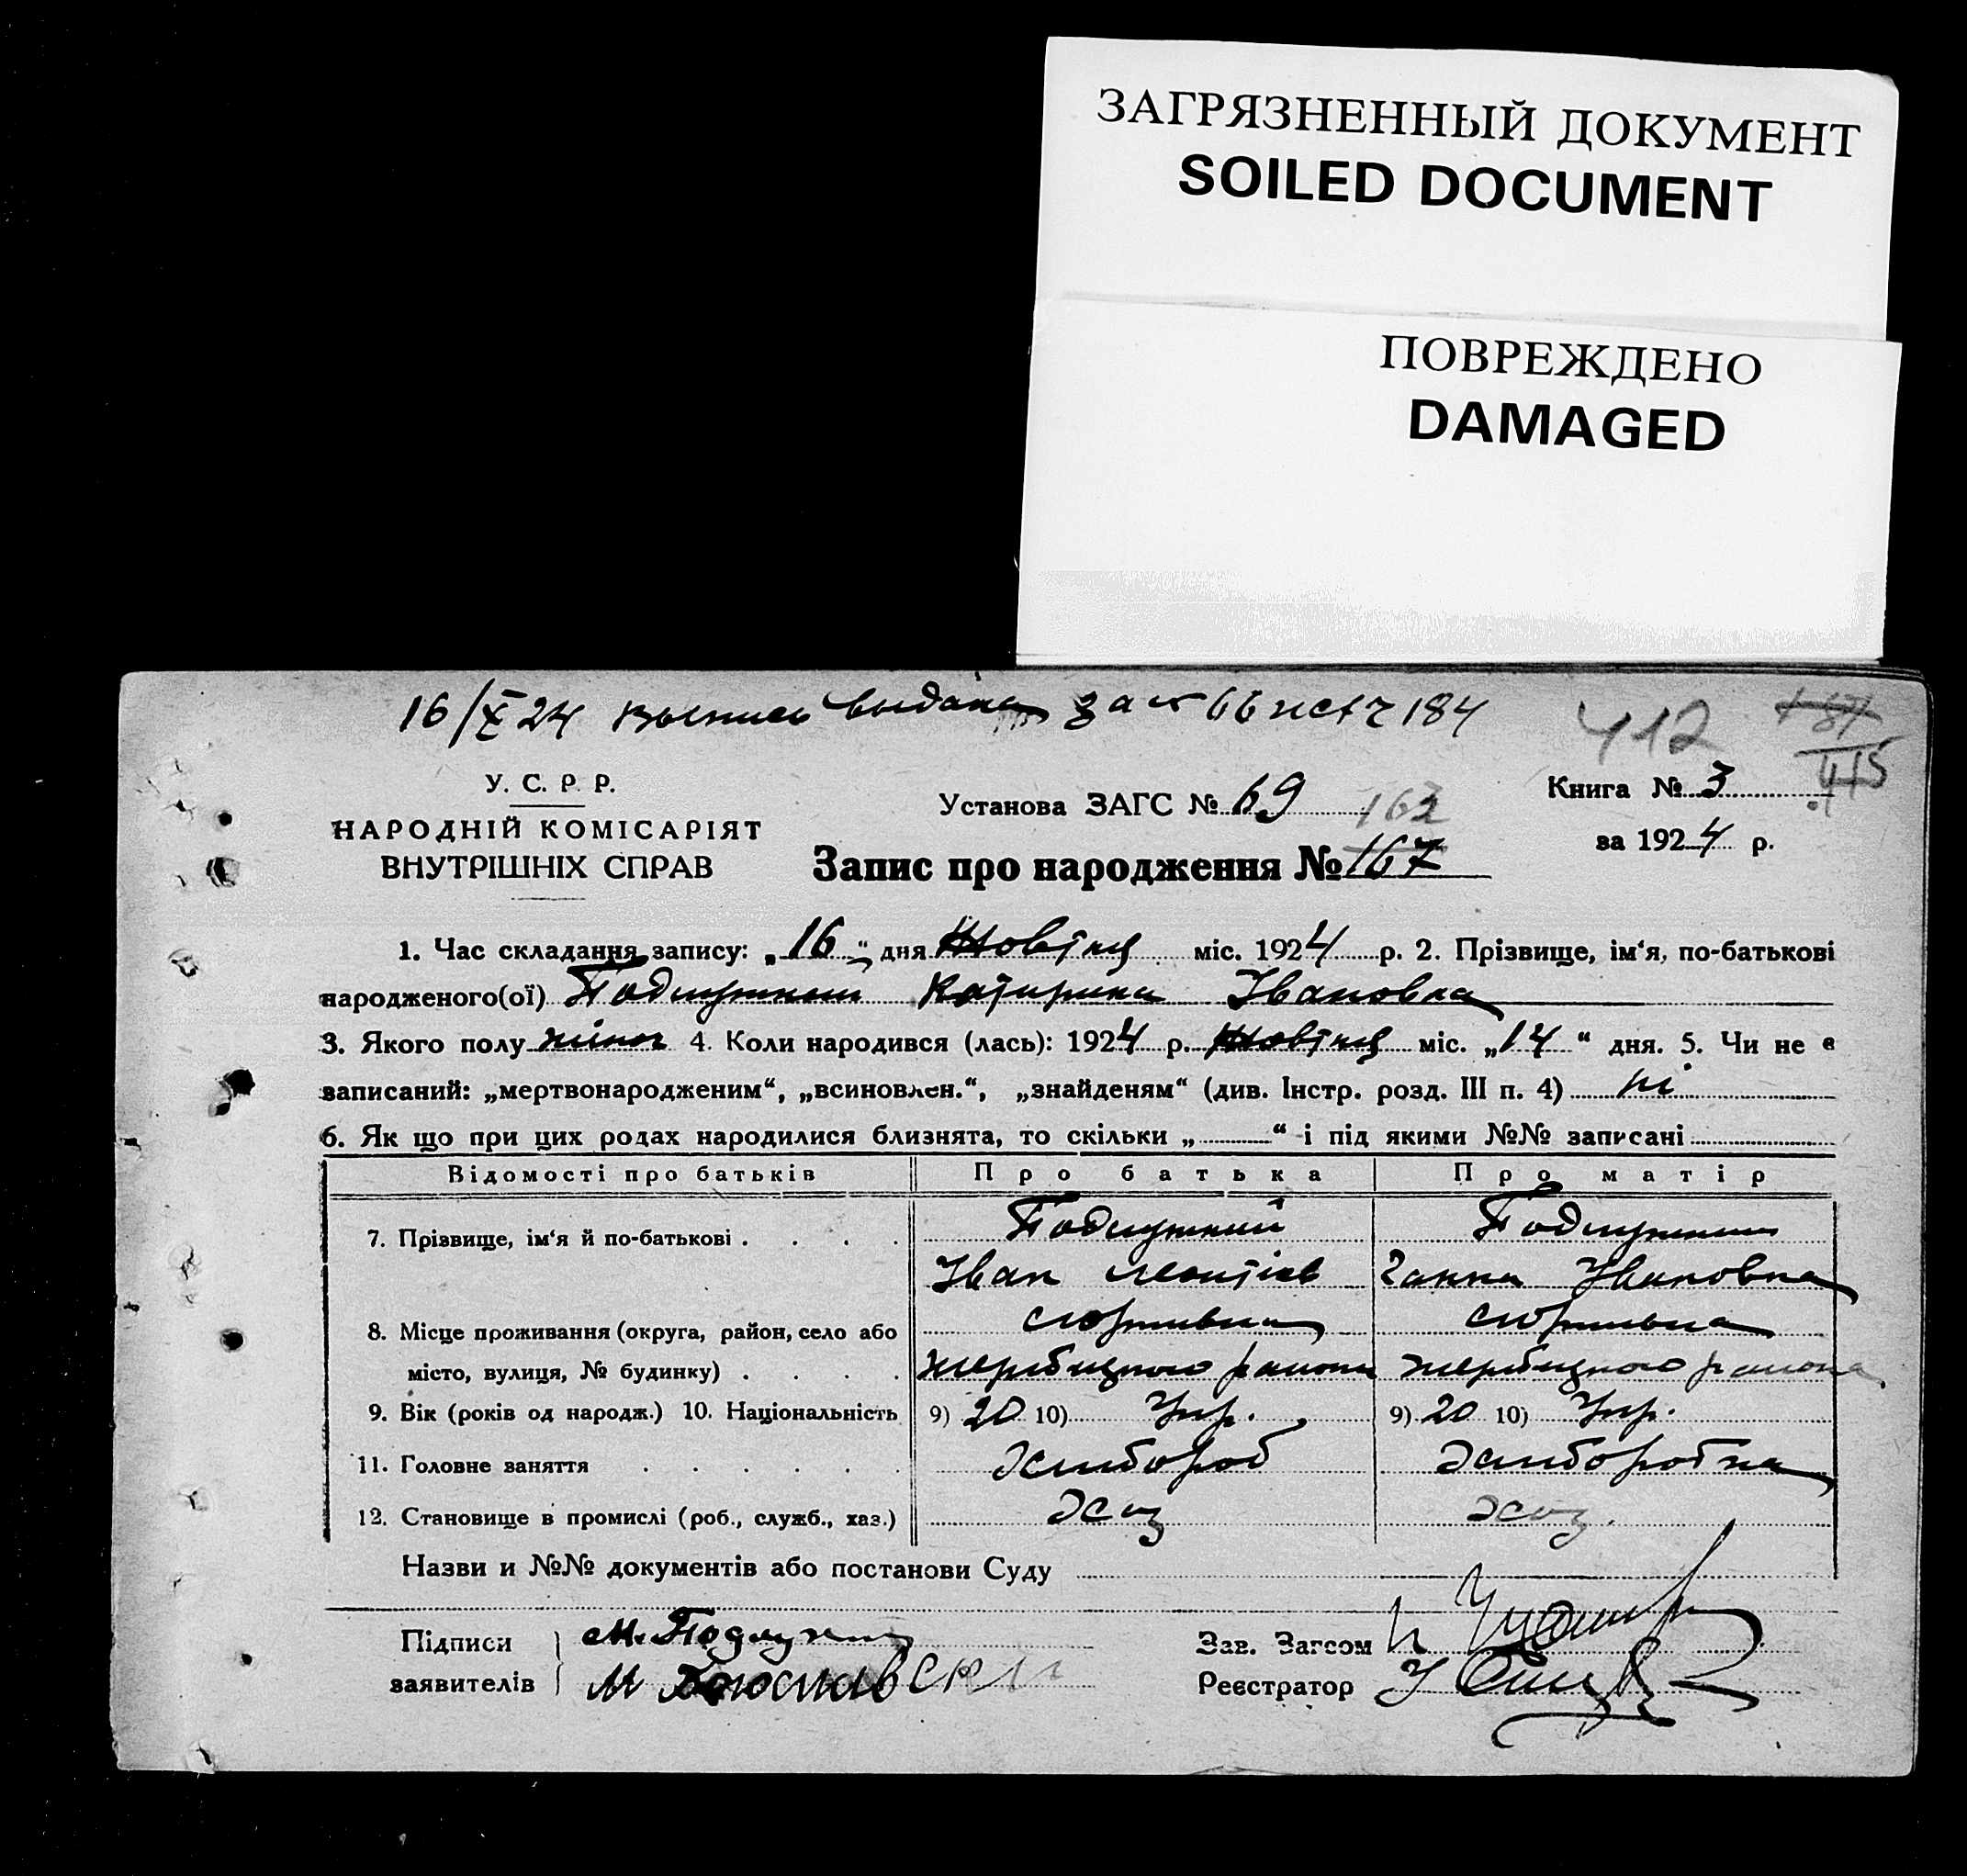 ЗАГРЯЗНЕННЫЙ ДОКУМЕНТ
SOILED DOCUMENT
ПОВРЕЖДЕНО
DAMAGED
16/X 24 Выпись выдана за № 66 184
412
415
У. С. Р. Р.
НАРОДНІЙ КОМІСАРІЯТ
ВНУТРІШНІХ СПРАВ
Установа ЗАГС № 69
Запис про народження № 167
Книга № 3
за 1924 р.
1. Час складання запису: „16“ дня Жовтня міс. 1924 р. 2. Прізвище, ім‘я, по-батькові
народженого(ої) Катирина Івановна
3. Якого полу жіноч 4. Коли народився (лась): 1924 р. Жовтня міс. „14“ дня. 5. Чи не є
записаний: „мертвонародженим“, „всиновлен.“, „знайденям“ (див. Інстр. розд. III п. 4) ні
6. Як що при цих родах народилися близнята, то скільки „ “ і під якими №№ записані
Відомості про батьків Про батька Про матір
7. Прізвище, ім‘я й по-батькові Подлужний
Іван Леонтіев Ганна Івановна
8. Місце проживання (округа, район, село або
місто, вулиця, № будинку) района района
9. Вік (років од народж.) 10. Національність 9) 20 10) Укр. 9) 20 10) Укр.
11. Головне заняття Хлібороб Хлиборобка
12. Становище в промислі (роб., служб., хаз.) Хоз Хоз.
Назви и №№ документів або постанови Суду
Підписи М.
заявителів М
Зав. Загсом
Реєстратор